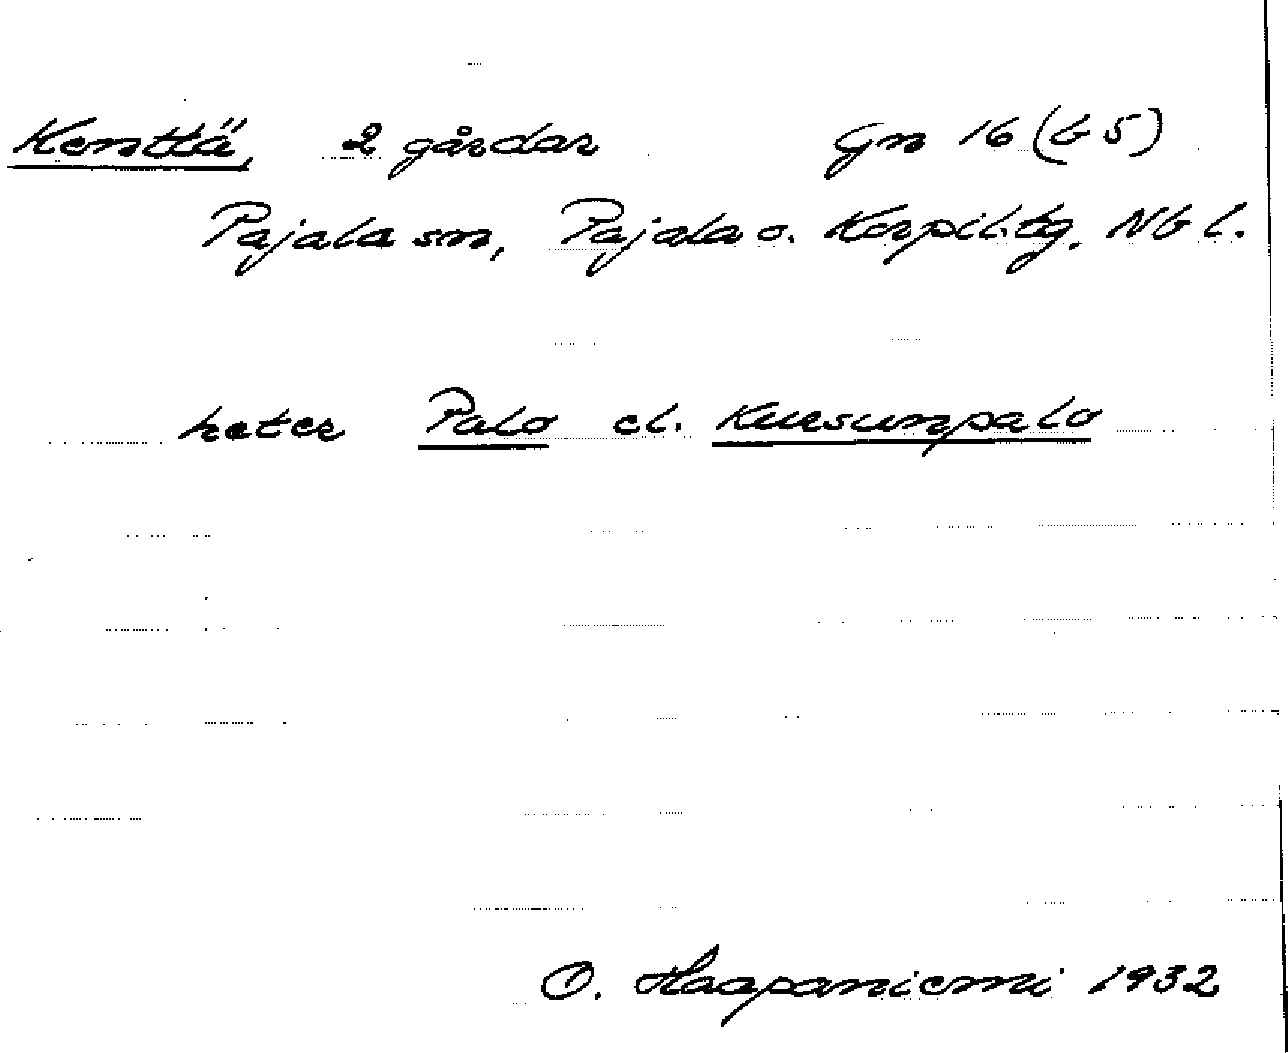 Kenttä, 2 gårdar Gn 16 (b 5)
Pajala sn, Pajala o. Korpil. tg. Nb l.
heter Palo el. Kuusunpalo
O. Haapaniemi 1932